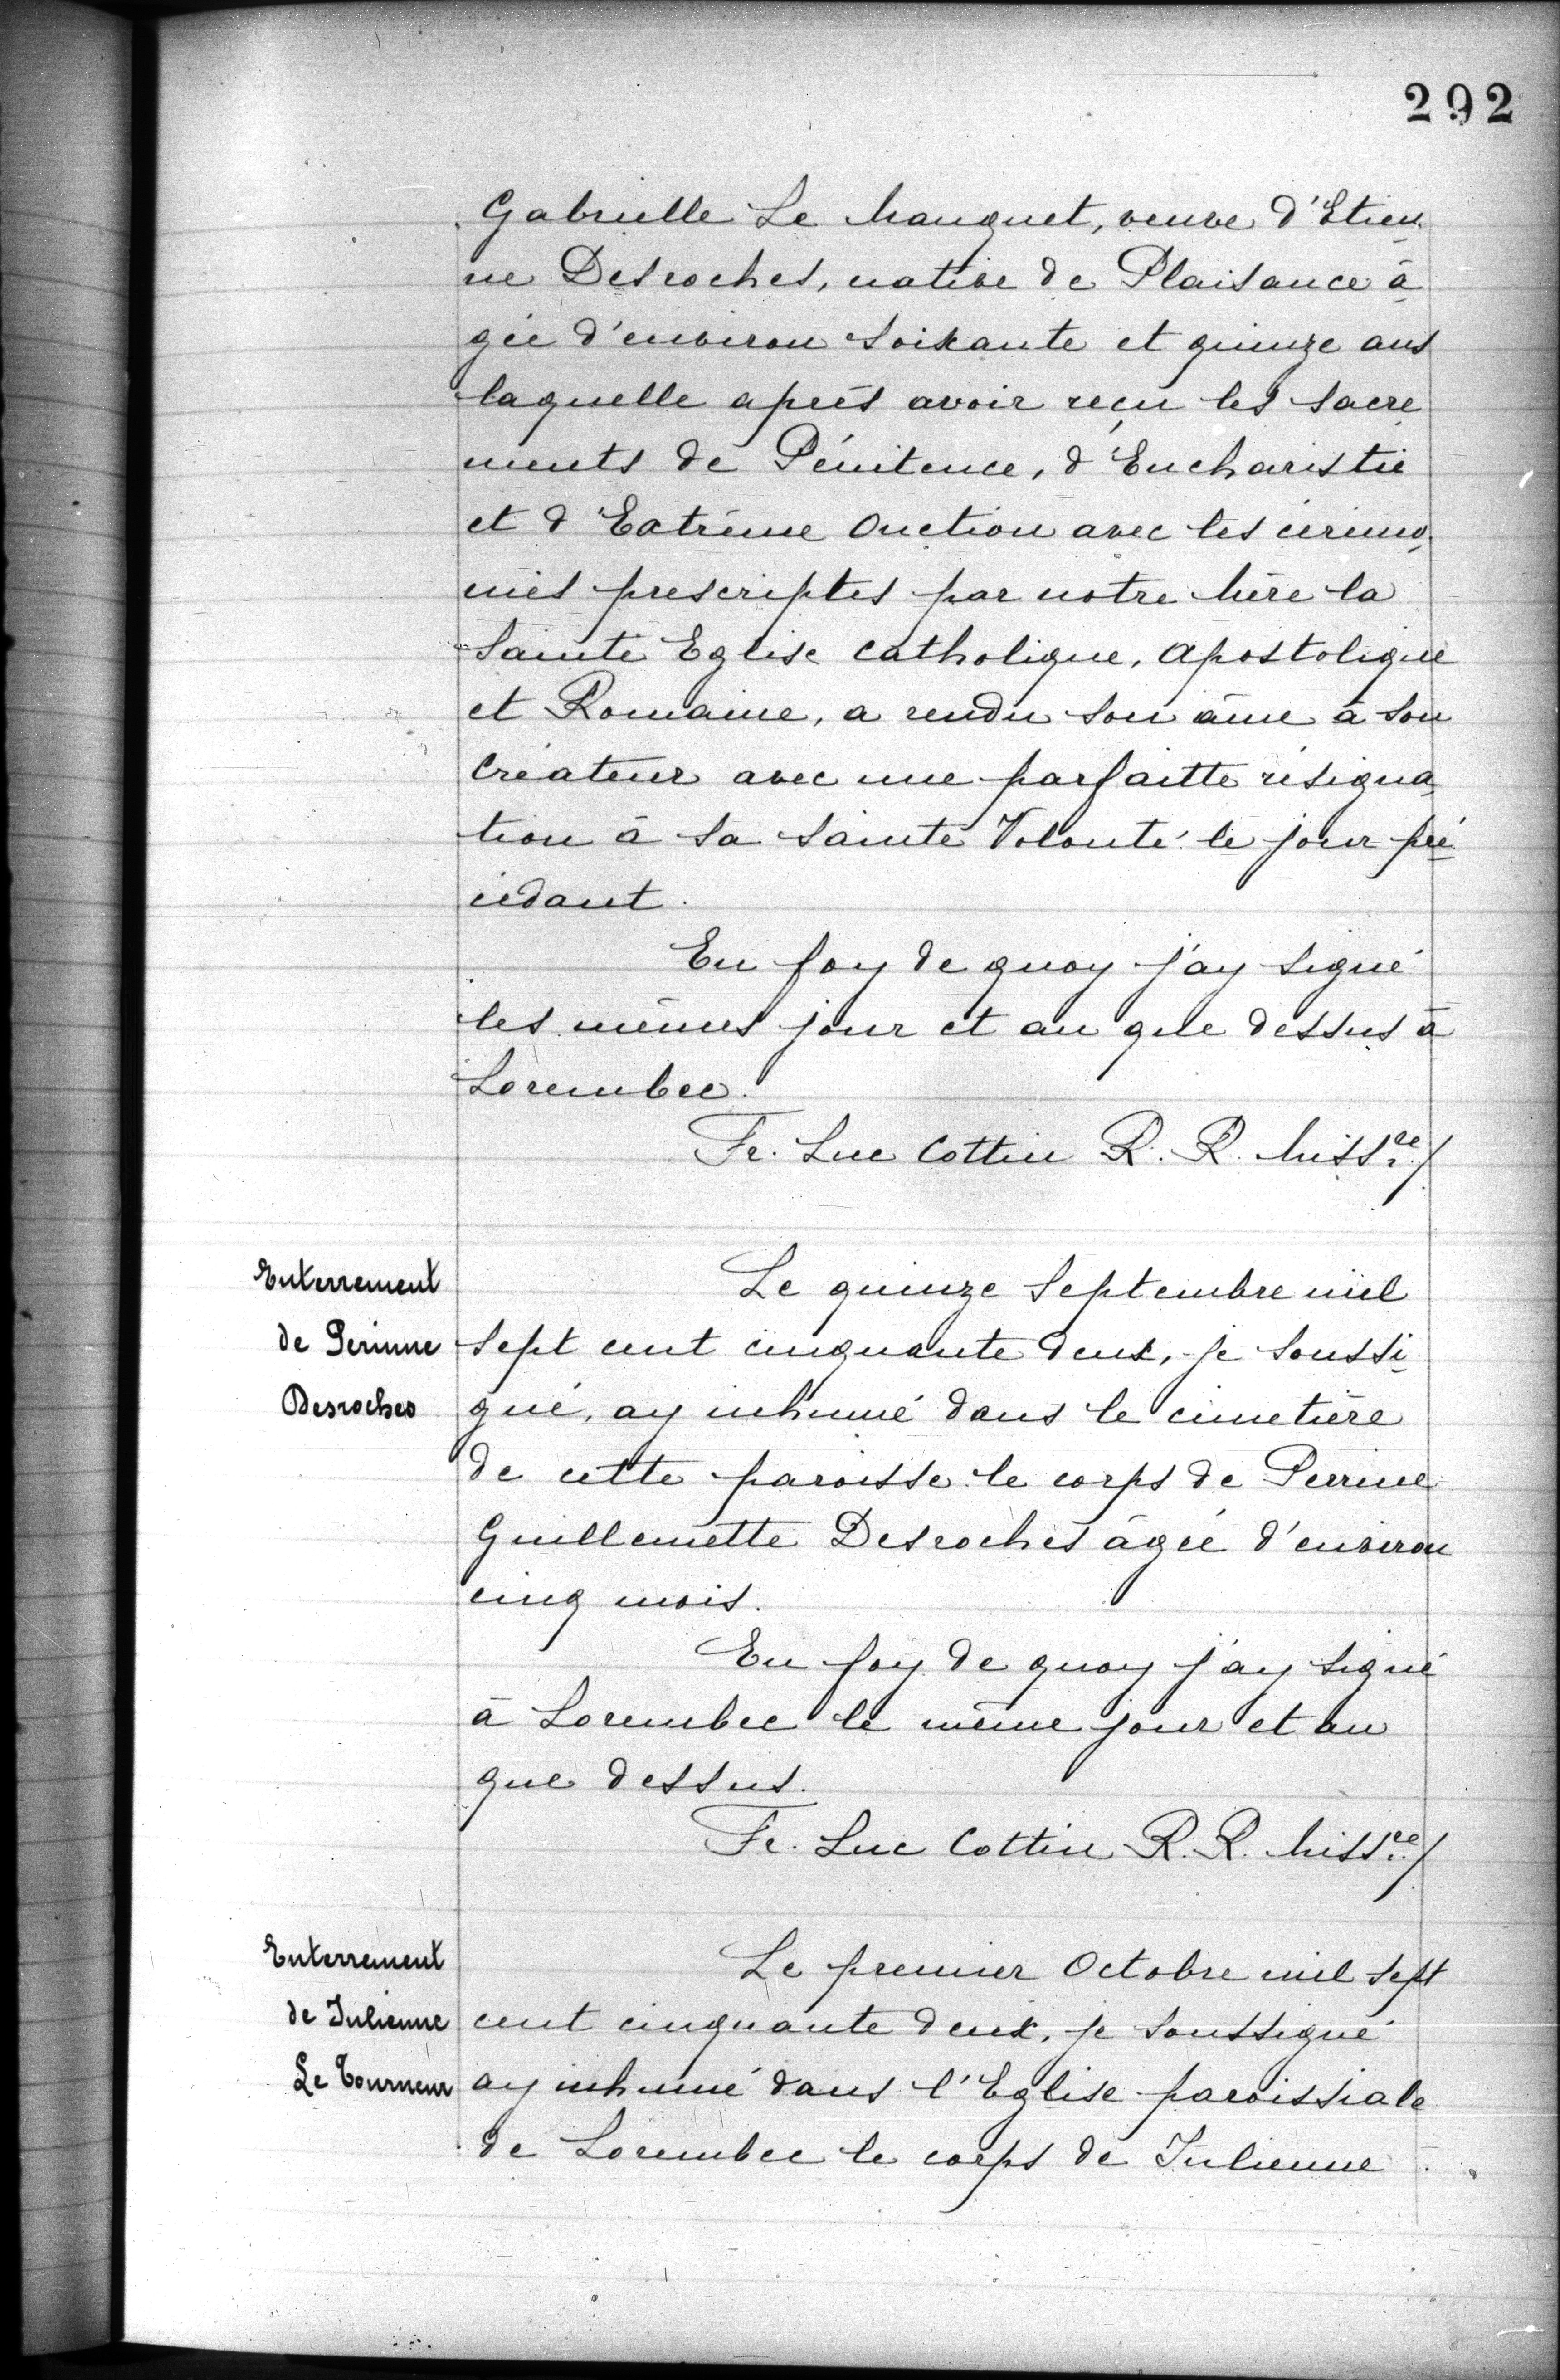 292
Gabrielle Le Manquet, veuve d'Etien
ne Desroches, native de Plaisance â
gée d'environ soixante et quinze ans
laquelle après avoir reçu les sacre
ments de Pénitence, d'Eucharistie
et d'Extrême Onction avec les cérémo
nies prescriptes par notre Mère la
Sainte Eglise Catholique, Apostolique
et Romaine, a rendu son âme à son
Créateur avec une parfaitte résigna
tion à sa Sainte Volonté le jour pré
cédant.
En foy de quoy j'ay signé
les mêmes jour et an que dessus à
Lorembec.
Fr. Luc Cottin R. R. Missre/
Enterrement
de Perinne
Desroches
Le quinze Septembre mil
sept cent cinquante deux, je soussi
gné, ay inhumé dans le cimetière
de cette paroisse le corps de Perrine
Guillemette Desroches âgée d'environ
cinq mois.
En foy de quoy j'ay signé
à Lorembec le même jour et an
que dessus.
Fr. Luc Cottin R. R. Missre/
Enterrement
de Julienne
Le Tourneur
Le premier Octobre mil sept
cent cinquante deux, je soussigné
ay inhumé dans l'Eglise paroissiale
de Lorembec le corps de Julienne